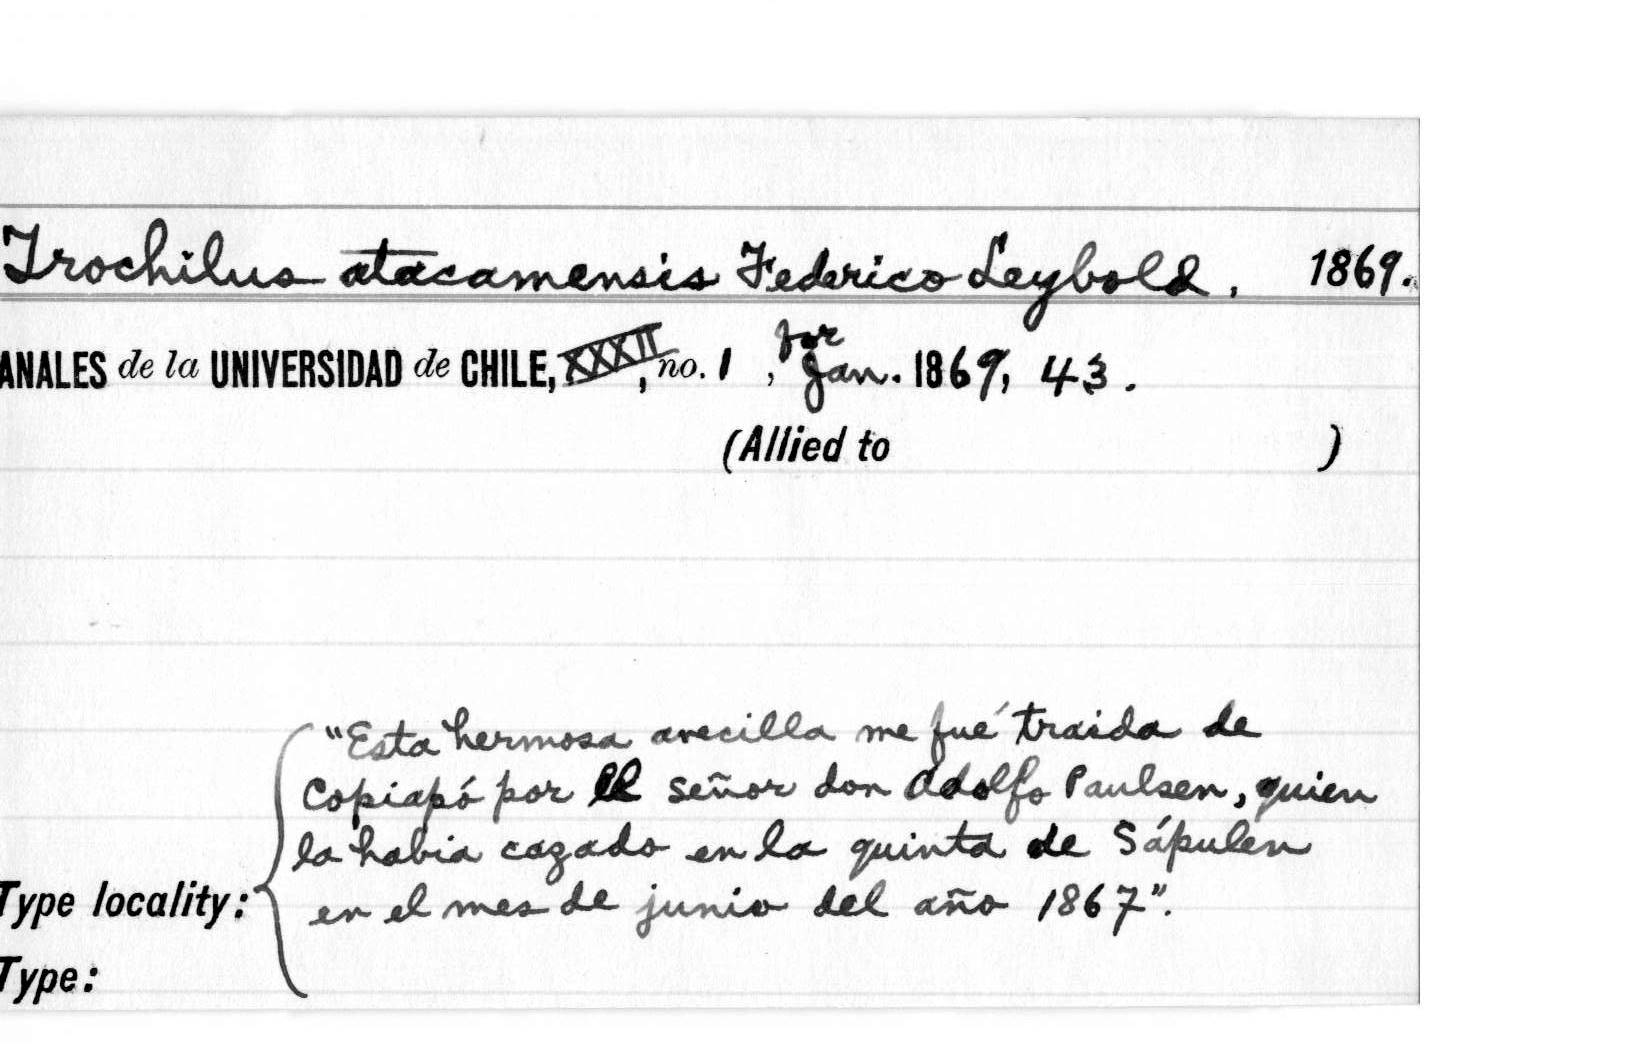 Trochilus atacamensis Federico Leybold, 1869.
ANALES de la UNIVERSIDAD de CHILE, XXXII, no. 1, for Jan. 1869, 43.
(Allied to )
"Esta hermosa avecilla me fué traida de
Copiapó por el señor don Adolfo Paulsen, quien
la habia cazado en la quinta de Sápulen
Type locality: en el mes de junio del año 1867".
Type: